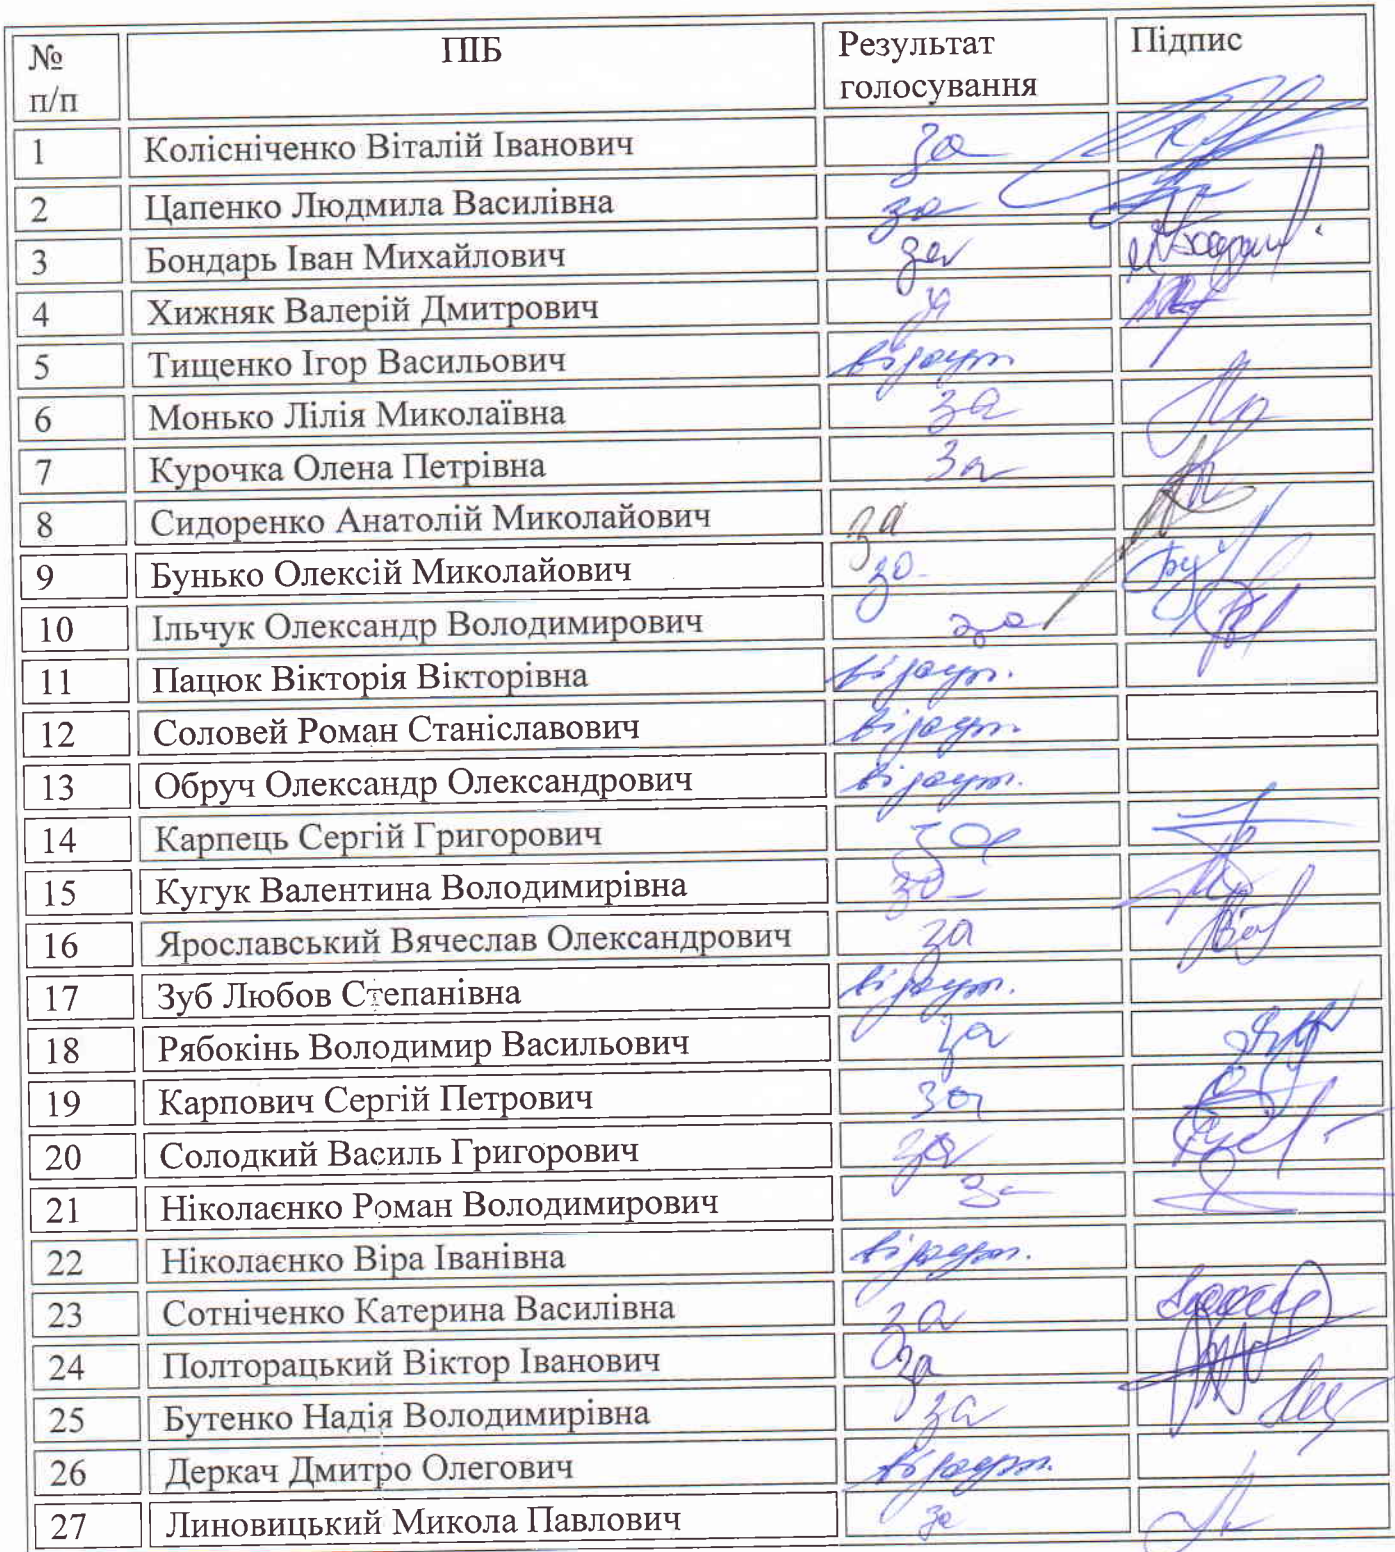 № п/п ПІБ Результат голосування Підпис
1 Колісніченко Віталій Іванович за
2 Цапенко Людмила Василівна за
3 Бондарь Іван Михайлович за
4 Хижняк Валерій Дмитрович за
5 Тищенко Ігор Васильович відсут.
6 Монько Лілія Миколаївна за
7 Курочка Олена Петрівна за
8 Сидоренко Анатолій Миколайович за
9 Бунько Олексій Миколайович за
10 Ільчук Олександр Володимирович за
11 Пацюк Вікторія Вікторівна відсут.
12 Соловей Роман Станіславович відсут.
13 Обруч Олександр Олександрович відсут.
14 Карпець Сергій Григорович за
15 Кугук Валентина Володимирівна за
16 Ярославський Вячеслав Олександрович за
17 Зуб Любов Степанівна відсут.
18 Рябокінь Володимир Васильович за
19 Карпович Сергій Петрович за
20 Солодкий Василь Григорович за
21 Ніколаєнко Роман Володимирович за
22 Ніколаєнко Віра Іванівна відсут.
23 Сотніченко Катерина Василівна за
24 Полторацький Віктор Іванович за
25 Бутенко Надія Володимирівна за
26 Деркач Дмитро Олегович відсут.
27 Линовицький Микола Павлович за